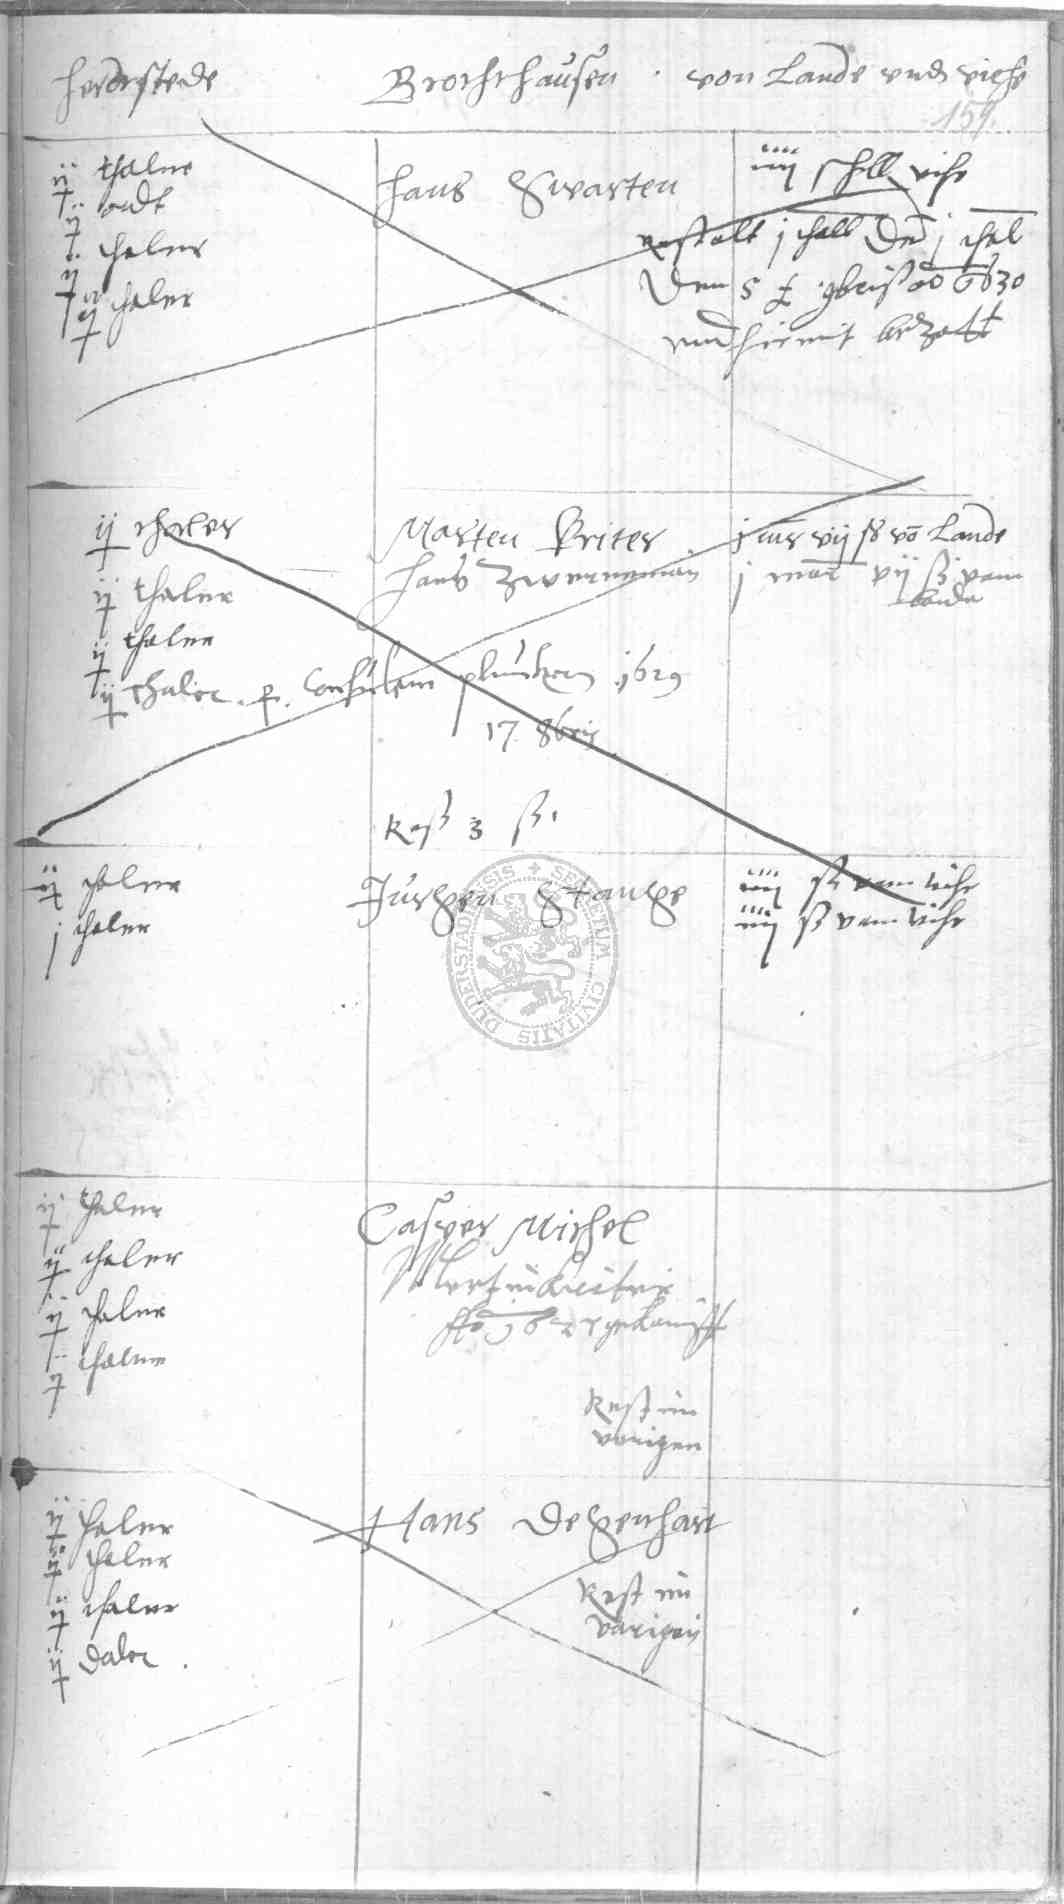 herdtstede Brochthausen von Lande vnd viehe
159.
ij thaler
ordt
thaler
ij thaler
Hans Swarten
iiij schll vihe
restatt j thall den j thal
Den 5 t 9bris ao 1630
vnd hiemit bezalt
ij thaler
ij thaler
ij thaler
ij thaler p. Consulem plincken 1629
17. 8bris
Marten Kriter
Hans Zwerneman
j mr vij ß vo Lande
j mar vij ß vam
Lande
Rest 3 ß
ij thaler
j thaler
Jurgen Stange
iiij ß vam vihe
iiij ß vam vihe
SECRETUM CIVITATIS DUDERSTADENSIS
ij thaler
ij thaler
ij thaler
ij thaler
Casper Michel
Rest im
vorigen
ij thaler
ij thaler
ij thaler
ij Daler
Hans Degenhart
Rest im
varigen